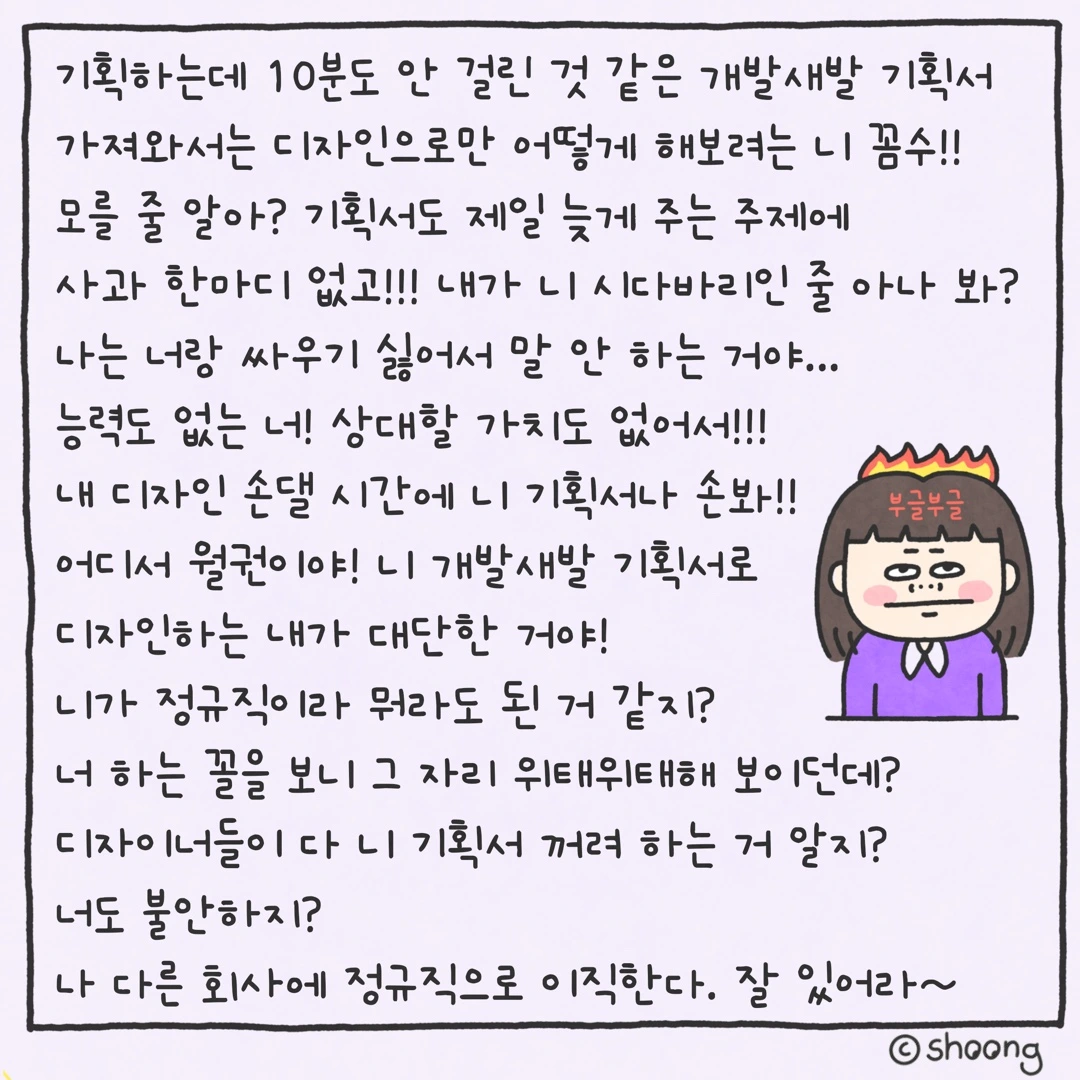 기획하는데 10분도 안 걸린 것 같은 개발새발 기획서
가져와서는 디자인으로만 어떻게 해보려는 니 꼼수!!
모를 줄 알아? 기획서도 제일 늦게 주는 주제에
사과 한마디 없고!!! 내가 니 시다바리인 줄 아나 봐?
나는 너랑 싸우기 싫어서 말 안 하는 거야...
능력도 없는 너! 상대할 가치도 없어서!!!
내 디자인 손댈 시간에 니 기획서나 손봐!!
어디서 월권이야! 니 개발새발 기획서로
디자인하는 내가 대단한 거야!
니가 정규직이라 뭐라도 된 거 같지?
너 하는 꼴을 보니 그 자리 위태위태해 보이던데?
디자이너들이 다 니 기획서 꺼려 하는 거 알지?
너도 불안하지?
나 다른 회사에 정규직으로 이직한다. 잘 있어라~
부글부글
©shoong